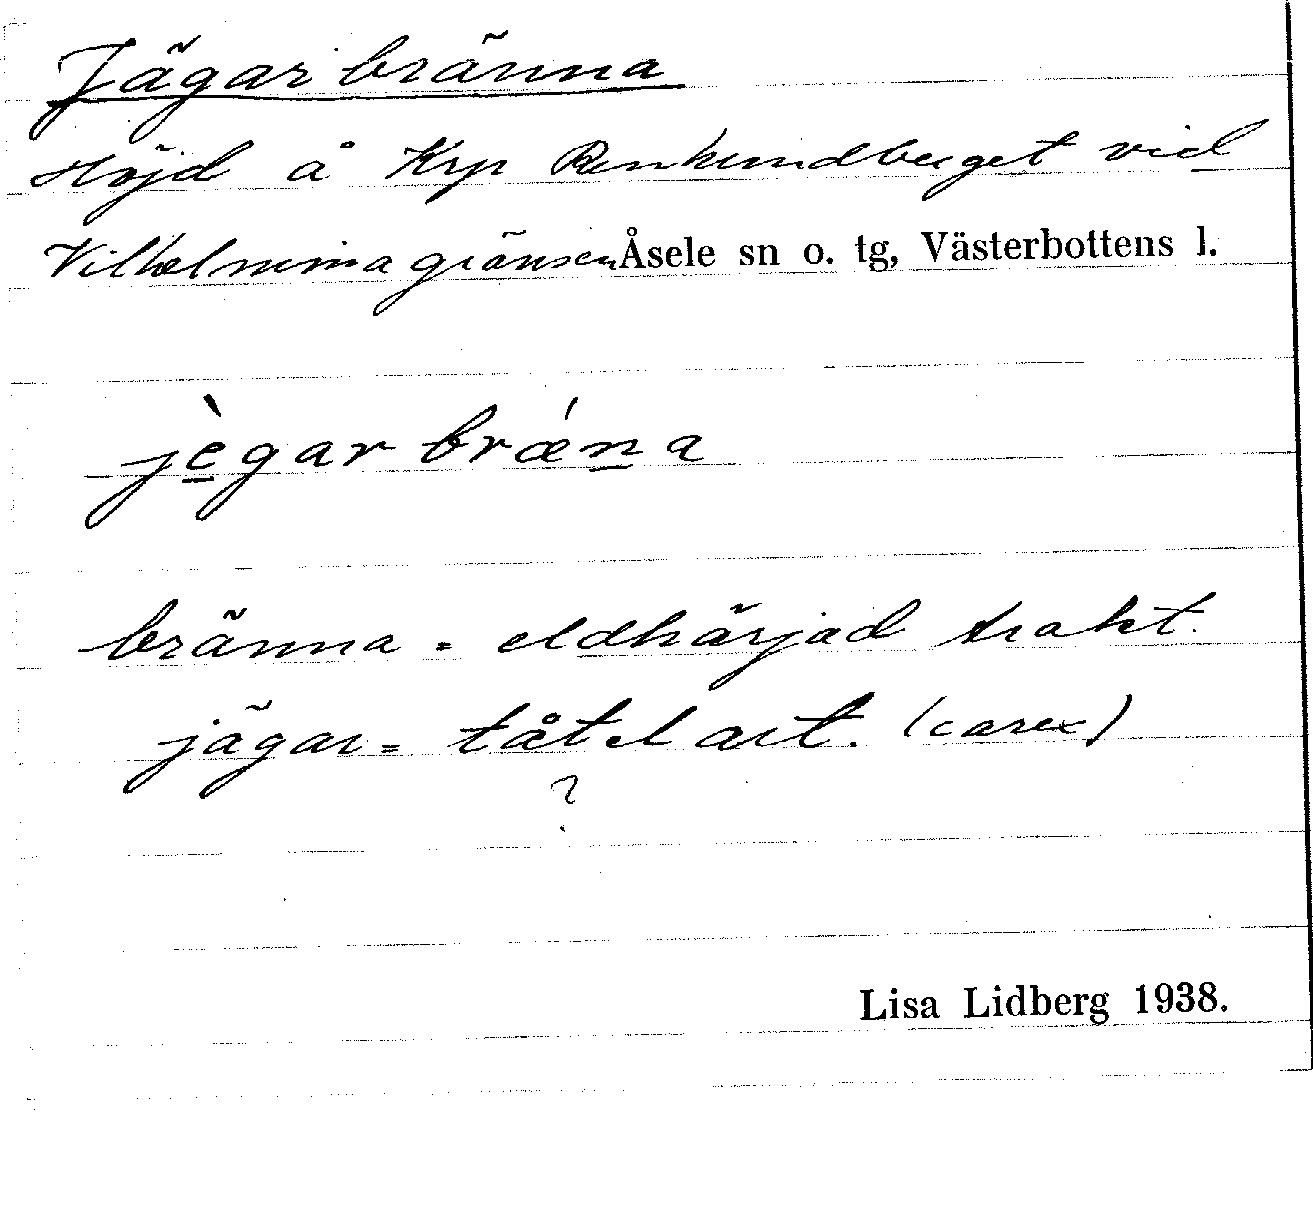 Jägarbränna
Höjd å Krp Renhundberget vid
Vilhelminagränsen Åsele sn o. tg, Västerbottens l.
jè̱gar brǽṉa
bränna = eldhärjad trakt.
jägar = tåtel art. (carex)
?
Lisa Lidberg 1938.